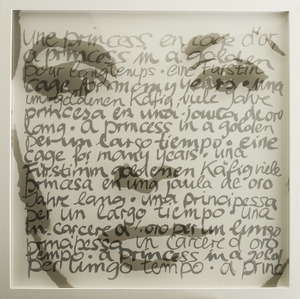 une princess en cage d'or
a princess in a golden
pour longtemps · eine Fürstin
cage for many years · una
im goldenen Käfig viele Jahre
princesa en una jaula de oro
lang · a princess in a golden
per un largo tiempo · eine
cage for many years · una
Fürstin im goldenen Käfig viele
princesa en una jaula de oro
Jahre lang · una principessa
per un largo tiempo una
in carcere d'oro per un lungo
principessa in carcere d'oro
tempo · a princess in a gold
per lungo tempo · a princ